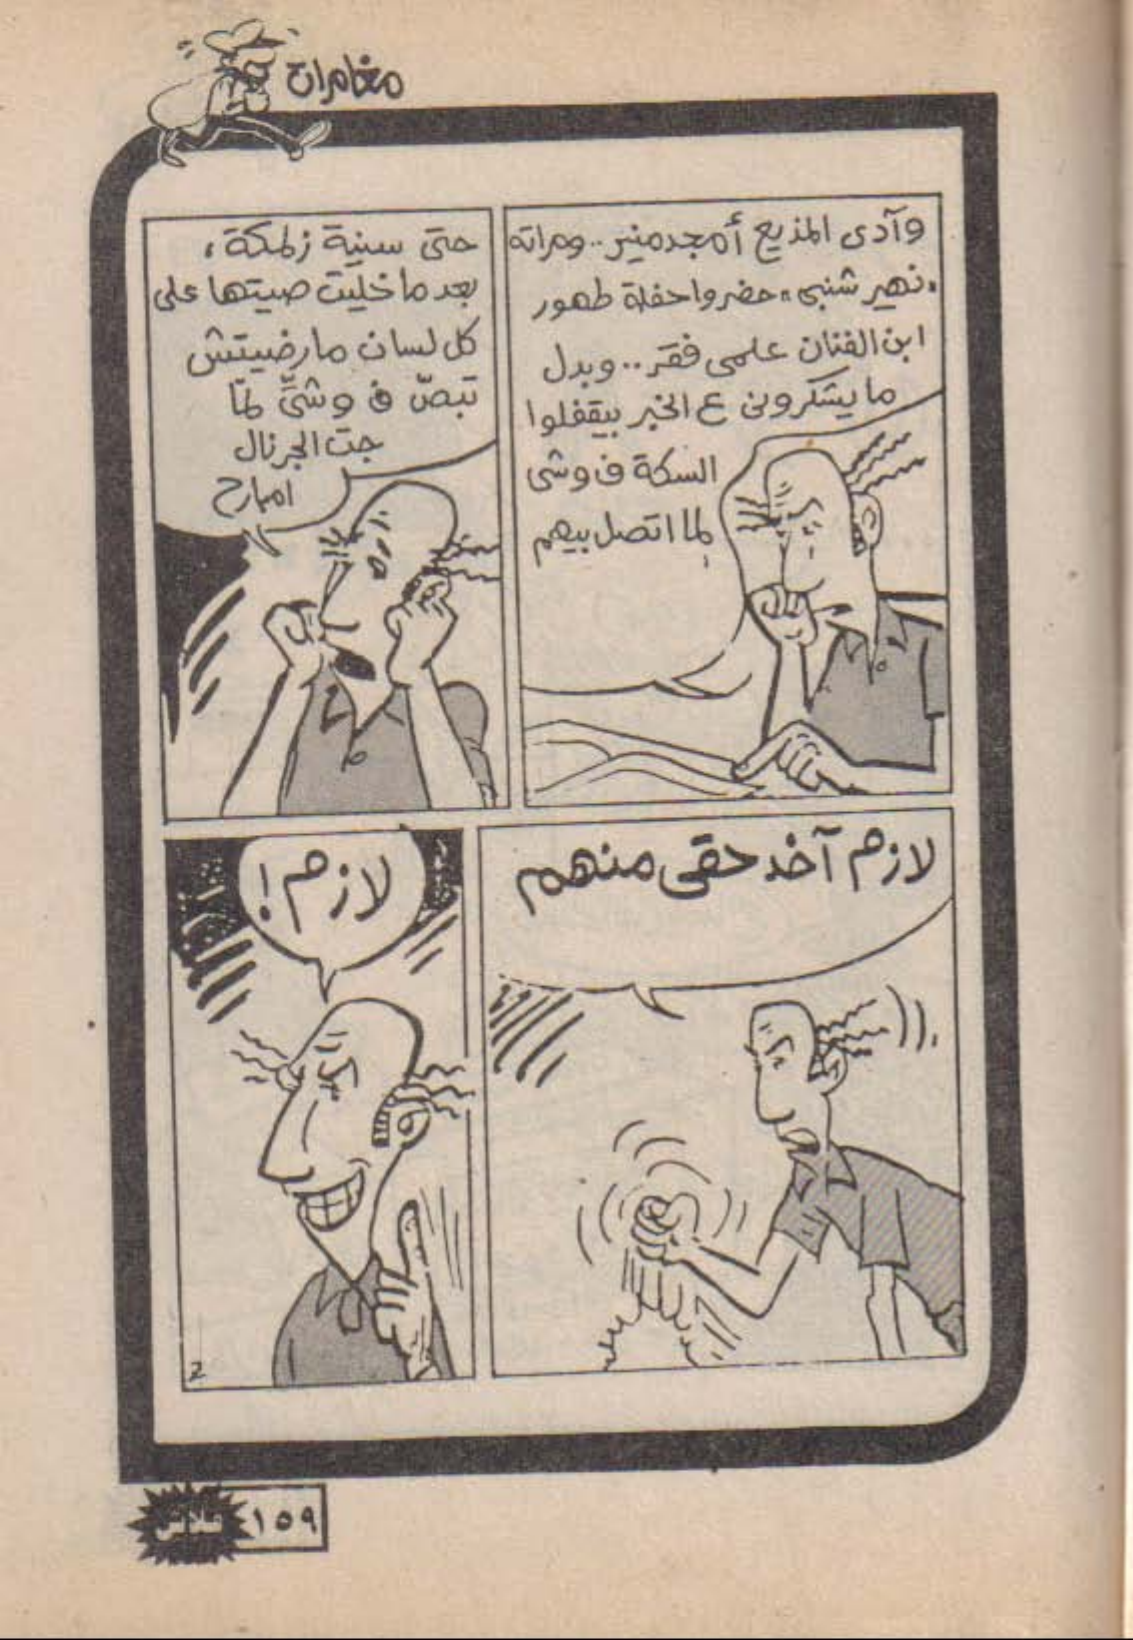 مغامرات
وآدى المذيع أمجد منير.. ومراته
"نهير شنبى" حضروا حفلة طهور
ابن الفنان علمى فقر.. وبدل
ما يشكرونى ع الخبر بيقفلوا
السكة ف وشى
لما اتصل بيهم
حتى سنية زلمكة،
بعد ما خليت صيتها على
كل لسان مارضيتش
تبصّ ف وشىِّ لمّا
جت الجرنال
امبارح
لازم آخد حقى منهم
لازم!
2
فلاش
١٥٩